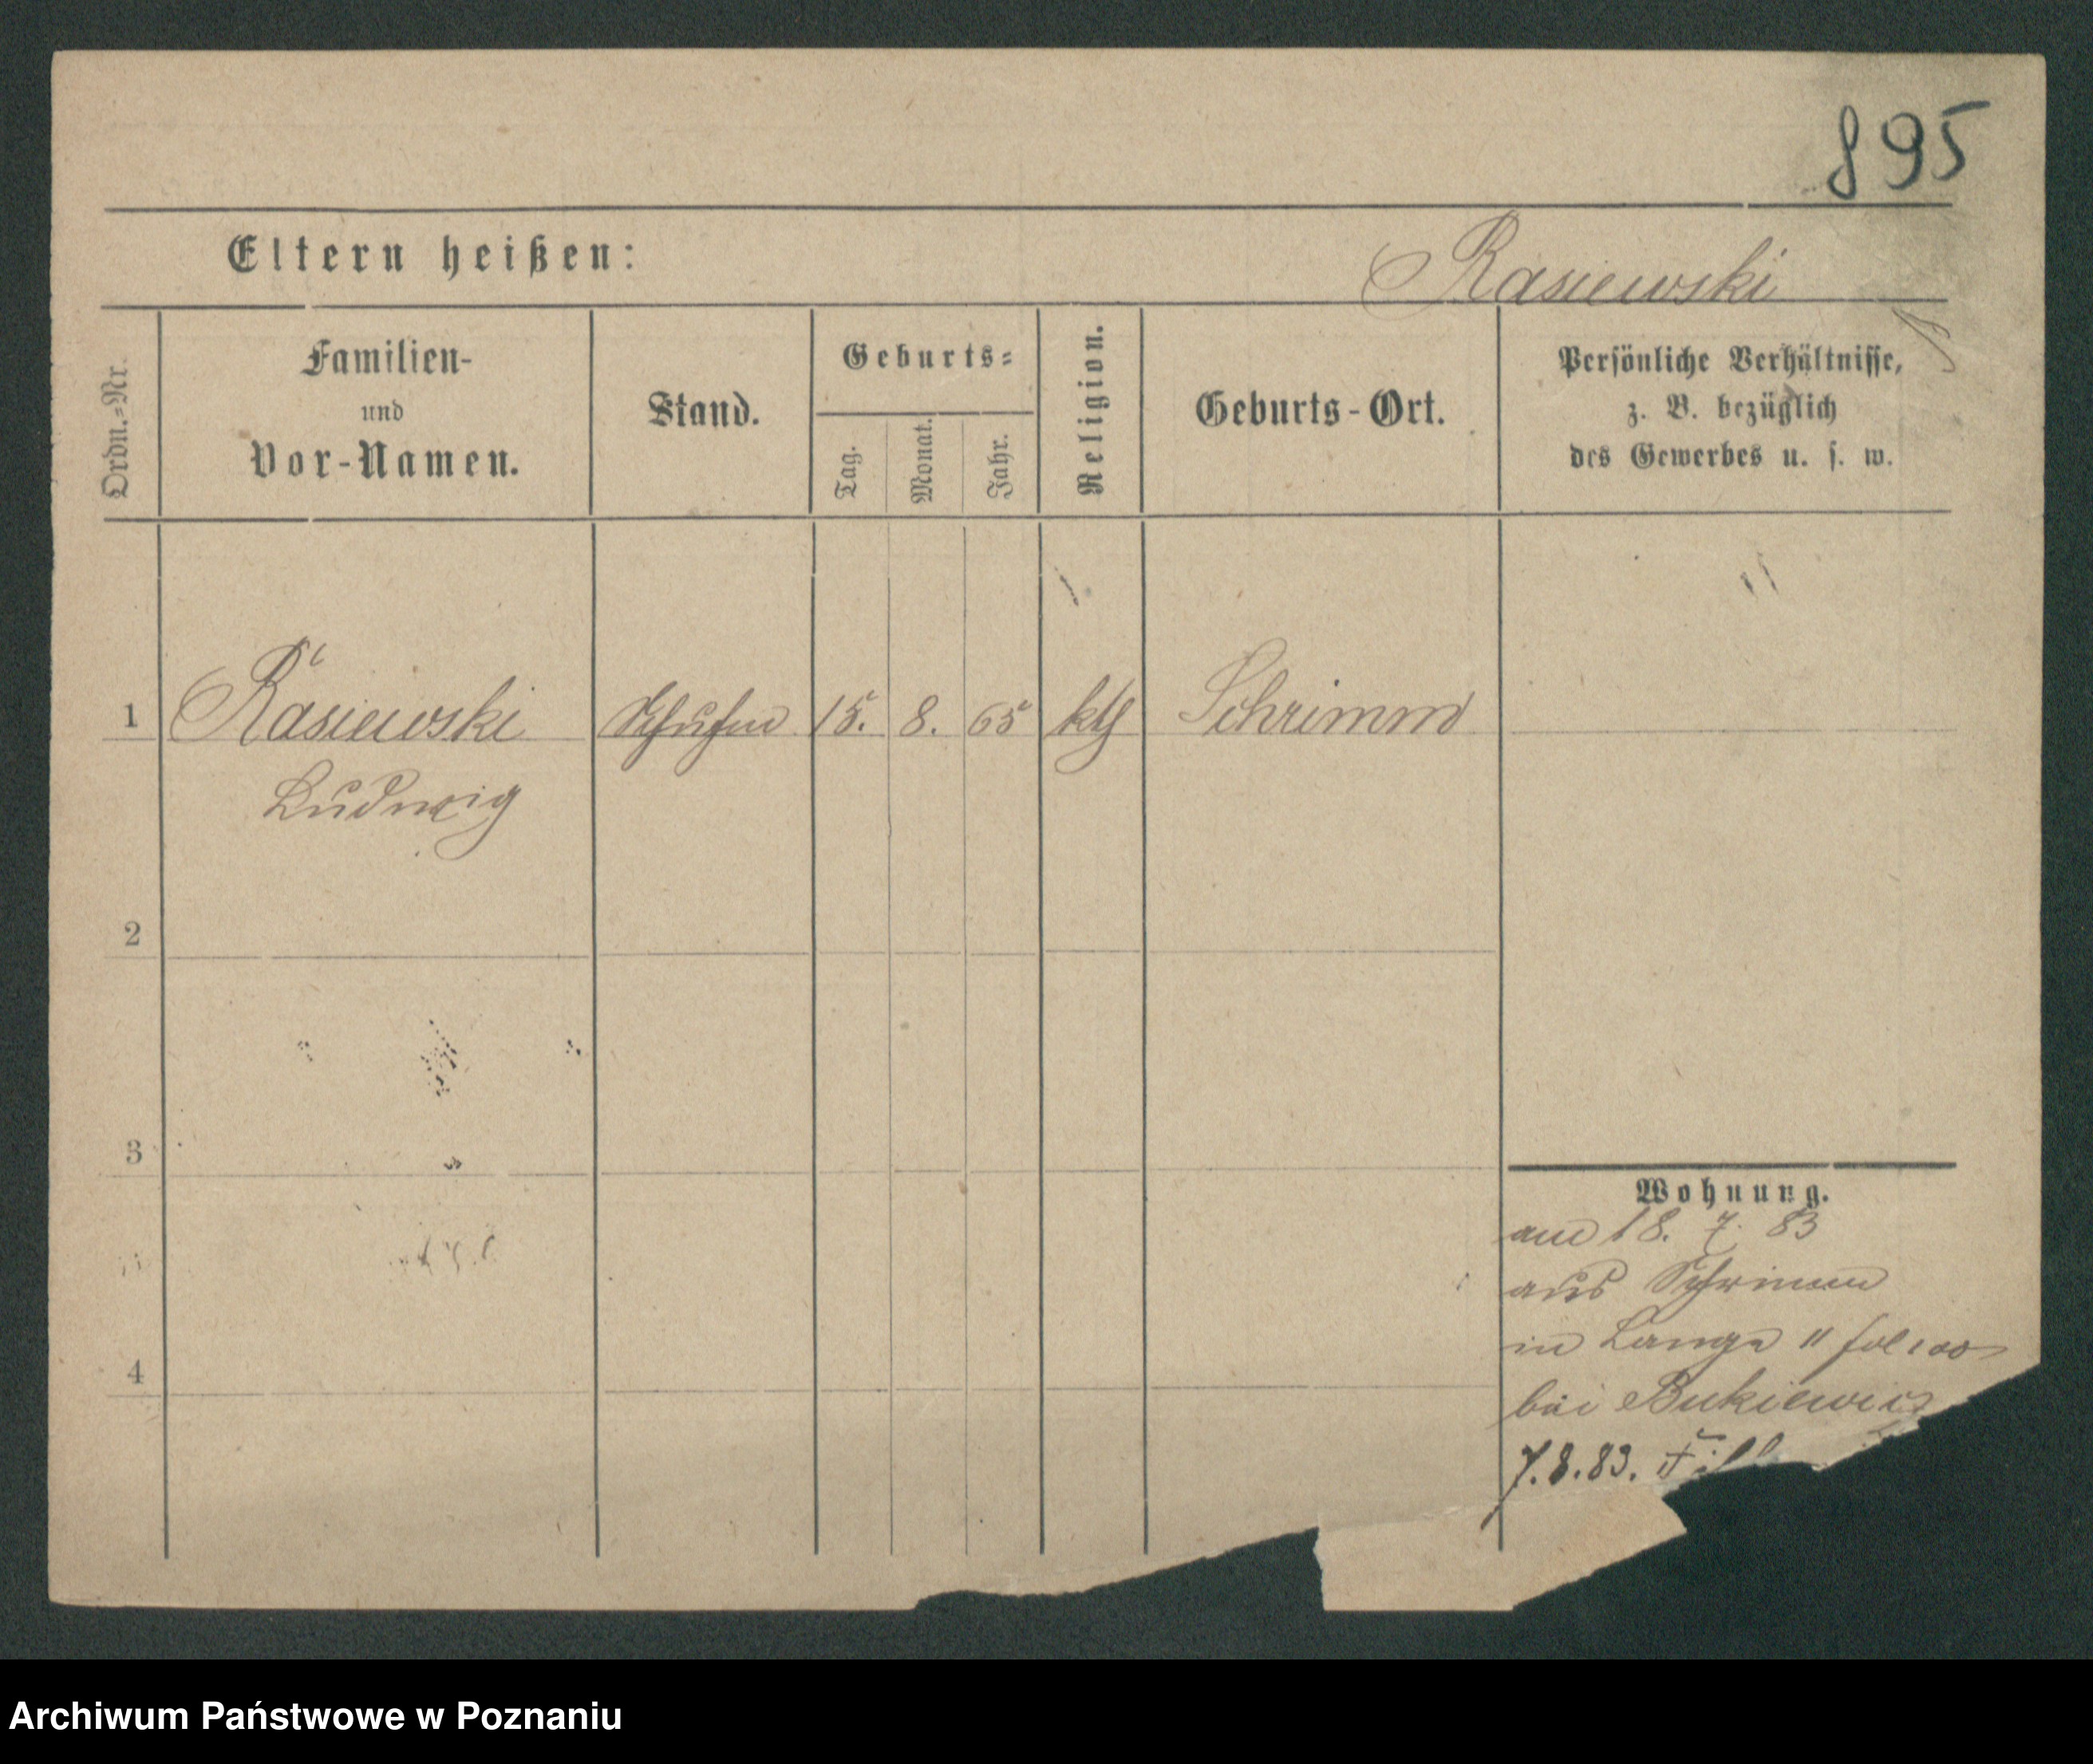 895
Eltern heißen:
Rasiewski
Ordn.-Nr.
Familien-
und
Vor-Namen.
Stand.
Geburts-
Tag.
Monat.
Jahr.
Religion.
Geburts-Ort.
Persönliche Verhältnisse,
z. B. bezüglich
des Gewerbes u. s. w.
1 Rasiewski 15. 8. 65 kth Schrimm
Ludwig
2
3
4
Wohnung.
18. 7. 83
aus Schrimm
in Lange
bei Bukiewicz
7.8.83.
Archiwum Państwowe w Poznaniu